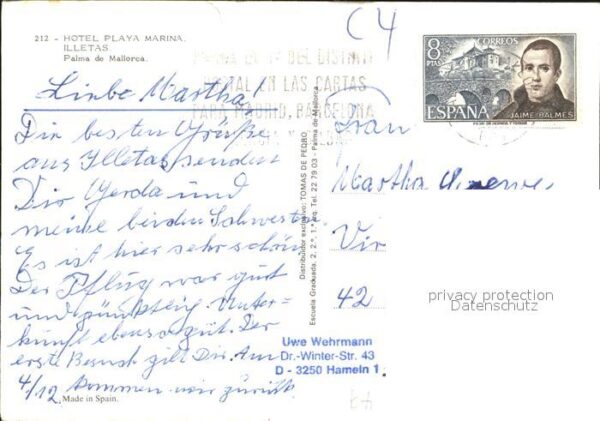 212 - HOTEL PLAYA MARINA.
ILLETAS.
Palma de Mallorca.
C4
8
PTAS
CORREOS
ESPAÑA
JAIME BALMES
DEL DISTRITO
POSTAL EN LAS CARTAS
PARA MADRID, BARCELONA
Liebe Martha!
Die besten Grüße
aus Illetas senden
Dir Gerda und
meine beiden Schwestern.
Es ist hier sehr schön.
Der Pflug war gut
und pünktlich. Unter=
kunft ebenso gut. Der
erste Besuch gilt Dir. Am
4/12 kommen wir zurück.
Made in Spain.
Distribuidor exclusivo: TOMAS DE PEDRO
Escuela Graduada, 2, 2.º, 1.ª izq. Tel. 22 79 03 - Palma de Mallorca
Frau
Martha
Vir
42
privacy protection
Datenschutz
Uwe Wehrmann
Dr.-Winter-Str. 43
D - 3250 Hameln 1